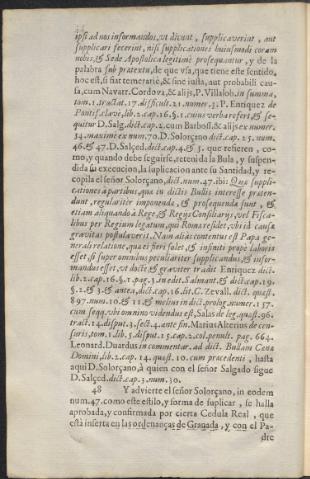 ipsi ad nos informandos, vt diuiat, supplicaveriat, aut
supplicari fecerint, nisi supplicationes huiusmodi coram
nobis, & Sede Apostolica legitimè prosequantur, y de la
palabra sub pratextu, de que vsa, que tiene este sentido,
hoc est, si fiat temerariè, & sine iusta, aut probabili cau-
sa, cum Navarr. Cordova, & alijs, P. Villalob. in summa,
tom. 1. tractat. 17. difficult. 21. numer. 5: P. Enriquez de
Pontif. clavi, lib. 2. cap. 16. §. 1. cuius verba refert, & se-
quitur D. Salg. dict. cap. 2. cum Barbos. & alijs ex numer.
34. maxime ex num. 70. D. Solorçano dict. cap. 25. num.
46. & 47. D. Salçed. dict. cap. 4. & 5. que refieren, co-
mo, y quando debe seguirse, retenida la Bula, y suspen-
dida su execucion, la suplicacion ante su Santidad, y re-
copila el señor Solorçano, dict. num. 47. ibi: Quæ suppli-
cationes à partibus, quæ in dictis Bullis interesse præten-
dunt, regulariter imponenda, & prosequenda sunt, &
etiam aliquando à Rege, & Regijs Consiliarijs, vel Fisca-
libus per Regium legatum, qui Romæ residet, vbi id causæ
gravitas postulaverit. Nam aliàs contentus est Papa ge-
nerali relatione, quæ ei fieri solet, & infiniti propè laboris
esset, si super omnibus peculiariter supplicandus, & infor-
mandus esset, vt doctè, & graviter tradit Enriquez dict.
lib. 2. cap. 16. §. 1. pag. 3. in edit. Salmant. & dict. cap. 19.
§. 2. & 3. & antea, dict. cap. 16. lit. C. Zevall. dict. quæst.
897. num. 10. & 11. & melius in dict. prolog. numer. 157.
cum seqq. vbi omnino videndus est, Salas de leg. quæst. 96.
tract. 14. disput. 3. sect. 4. ante fin. Marius Alterius de cen-
suris, tom. 1. lib. 5. disput. 15. cap. 2. col. penult. pag. 664.
Leonard. Duardus in commentar. ad dict. Bullam Cœnæ
Domini, lib. 2. cap. 14. quæst. 10. cum præcedenti, hasta
aqui D. Solorçano, à quien con el señor Salgado sigue
D. Salçed. dict. cap. 3. num. 30.
48 Y advierte el señor Solorçano, in eodem
num. 47. como este estilo, y forma de suplicar, se halla
aprobada, y confirmada por cierta Cedula Real, que
està inserta en las ordenanças de Granada, y con el Pa-
dre